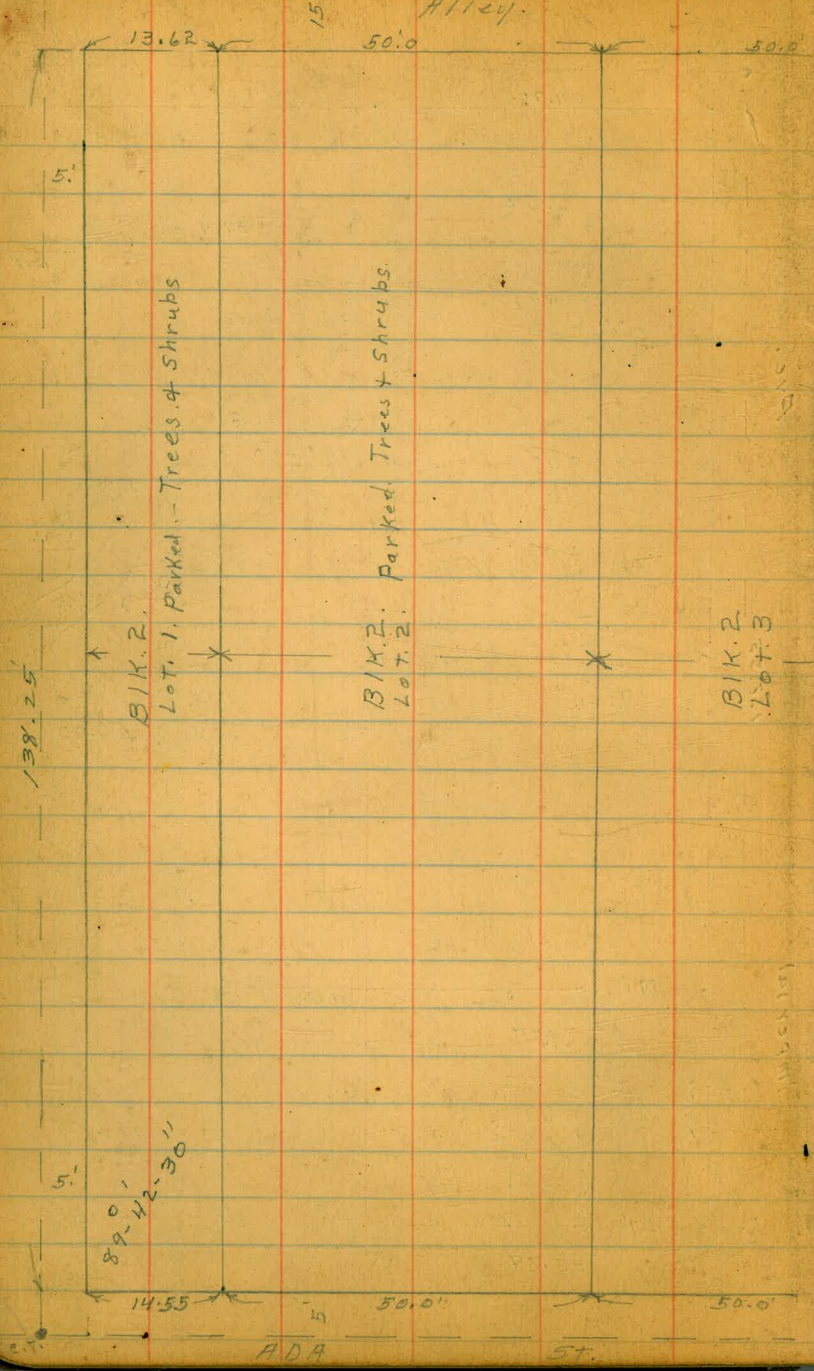 15
Alley.
13.62
50.0
50.0
5.'
Blk. 2.
Lot. 1. Parked. - Trees. & Shrubs
Blk. 2.
Lot. 2. Parked. Trees & Shrubs.
Blk. 2
Lot. 3
138.25'
5.'
89°-42'-30"
14.55
5
50.0'
50.0'
ADA St.